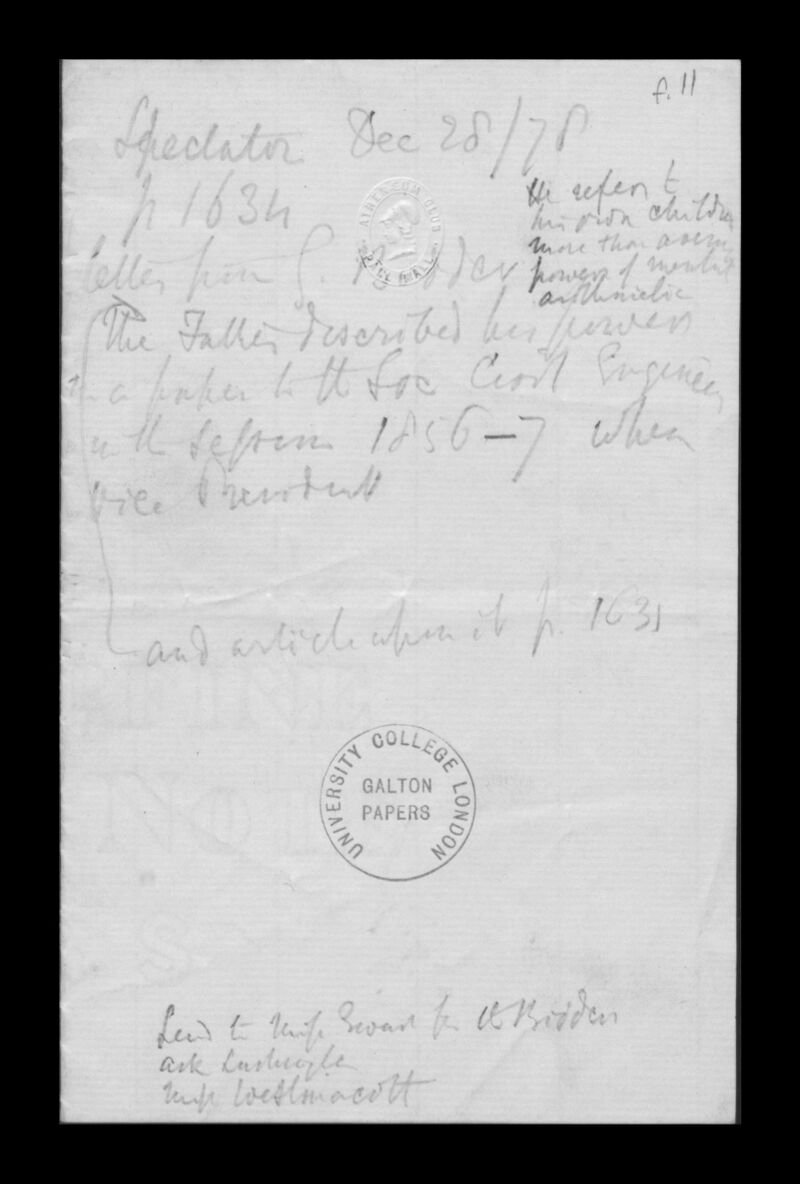 f. 11
Spectator Dec 28/78
p 1634
ATHENAEUM CLUB
PALL MALL
letter from G. Bidder
He refers to
his own children
more than average
powers of mental
arithmetic
The Father described his powers
in a paper to the Soc Civil Engineers
in the Session 1856–7 when
Vice President
and article upon it p. 1631
UNIVERSITY COLLEGE LONDON
GALTON
PAPERS
Send to Miss for Bidder
ask
Miss Westmacott